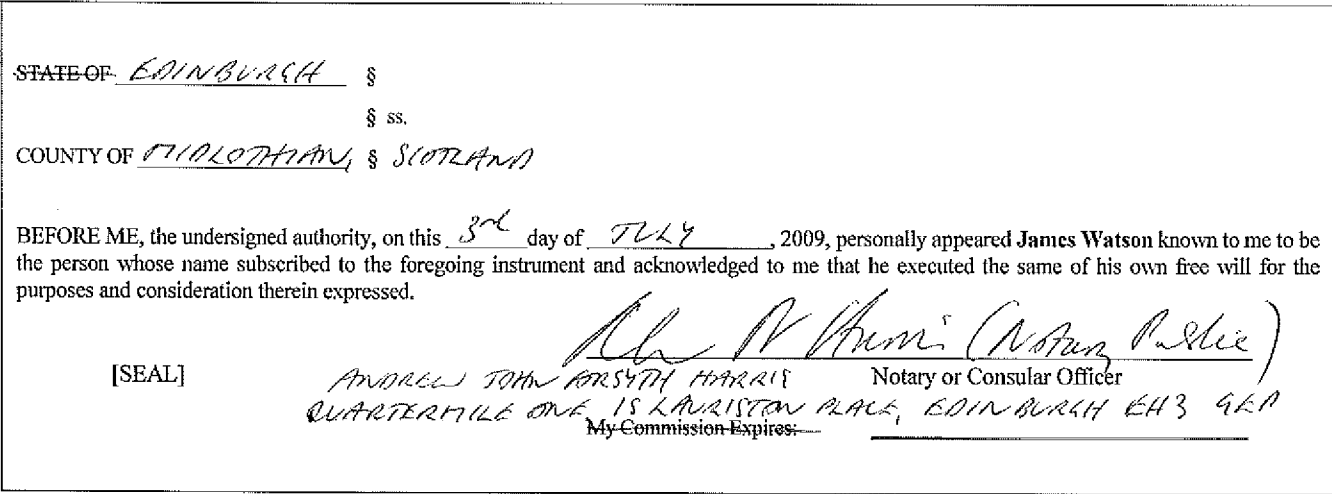 STATE OF EDINBURGH §
§ ss.
COUNTY OF MIDLOTHIAN, § SCOTLAND
BEFORE ME, the undersigned authority, on this 3rd day of JULY, 2009, personally appeared James Watson known to me to be
the person whose name subscribed to the foregoing instrument and acknowledged to me that he executed the same of his own free will for the
purposes and consideration therein expressed.
(Notary Public)
[SEAL] ANDREW JOHN FORSYTH HARRIS Notary or Consular Officer
QUARTERMILE ONE, 15 LAURISTON PLACE, EDINBURGH EH3 9EP
My Commission Expires: